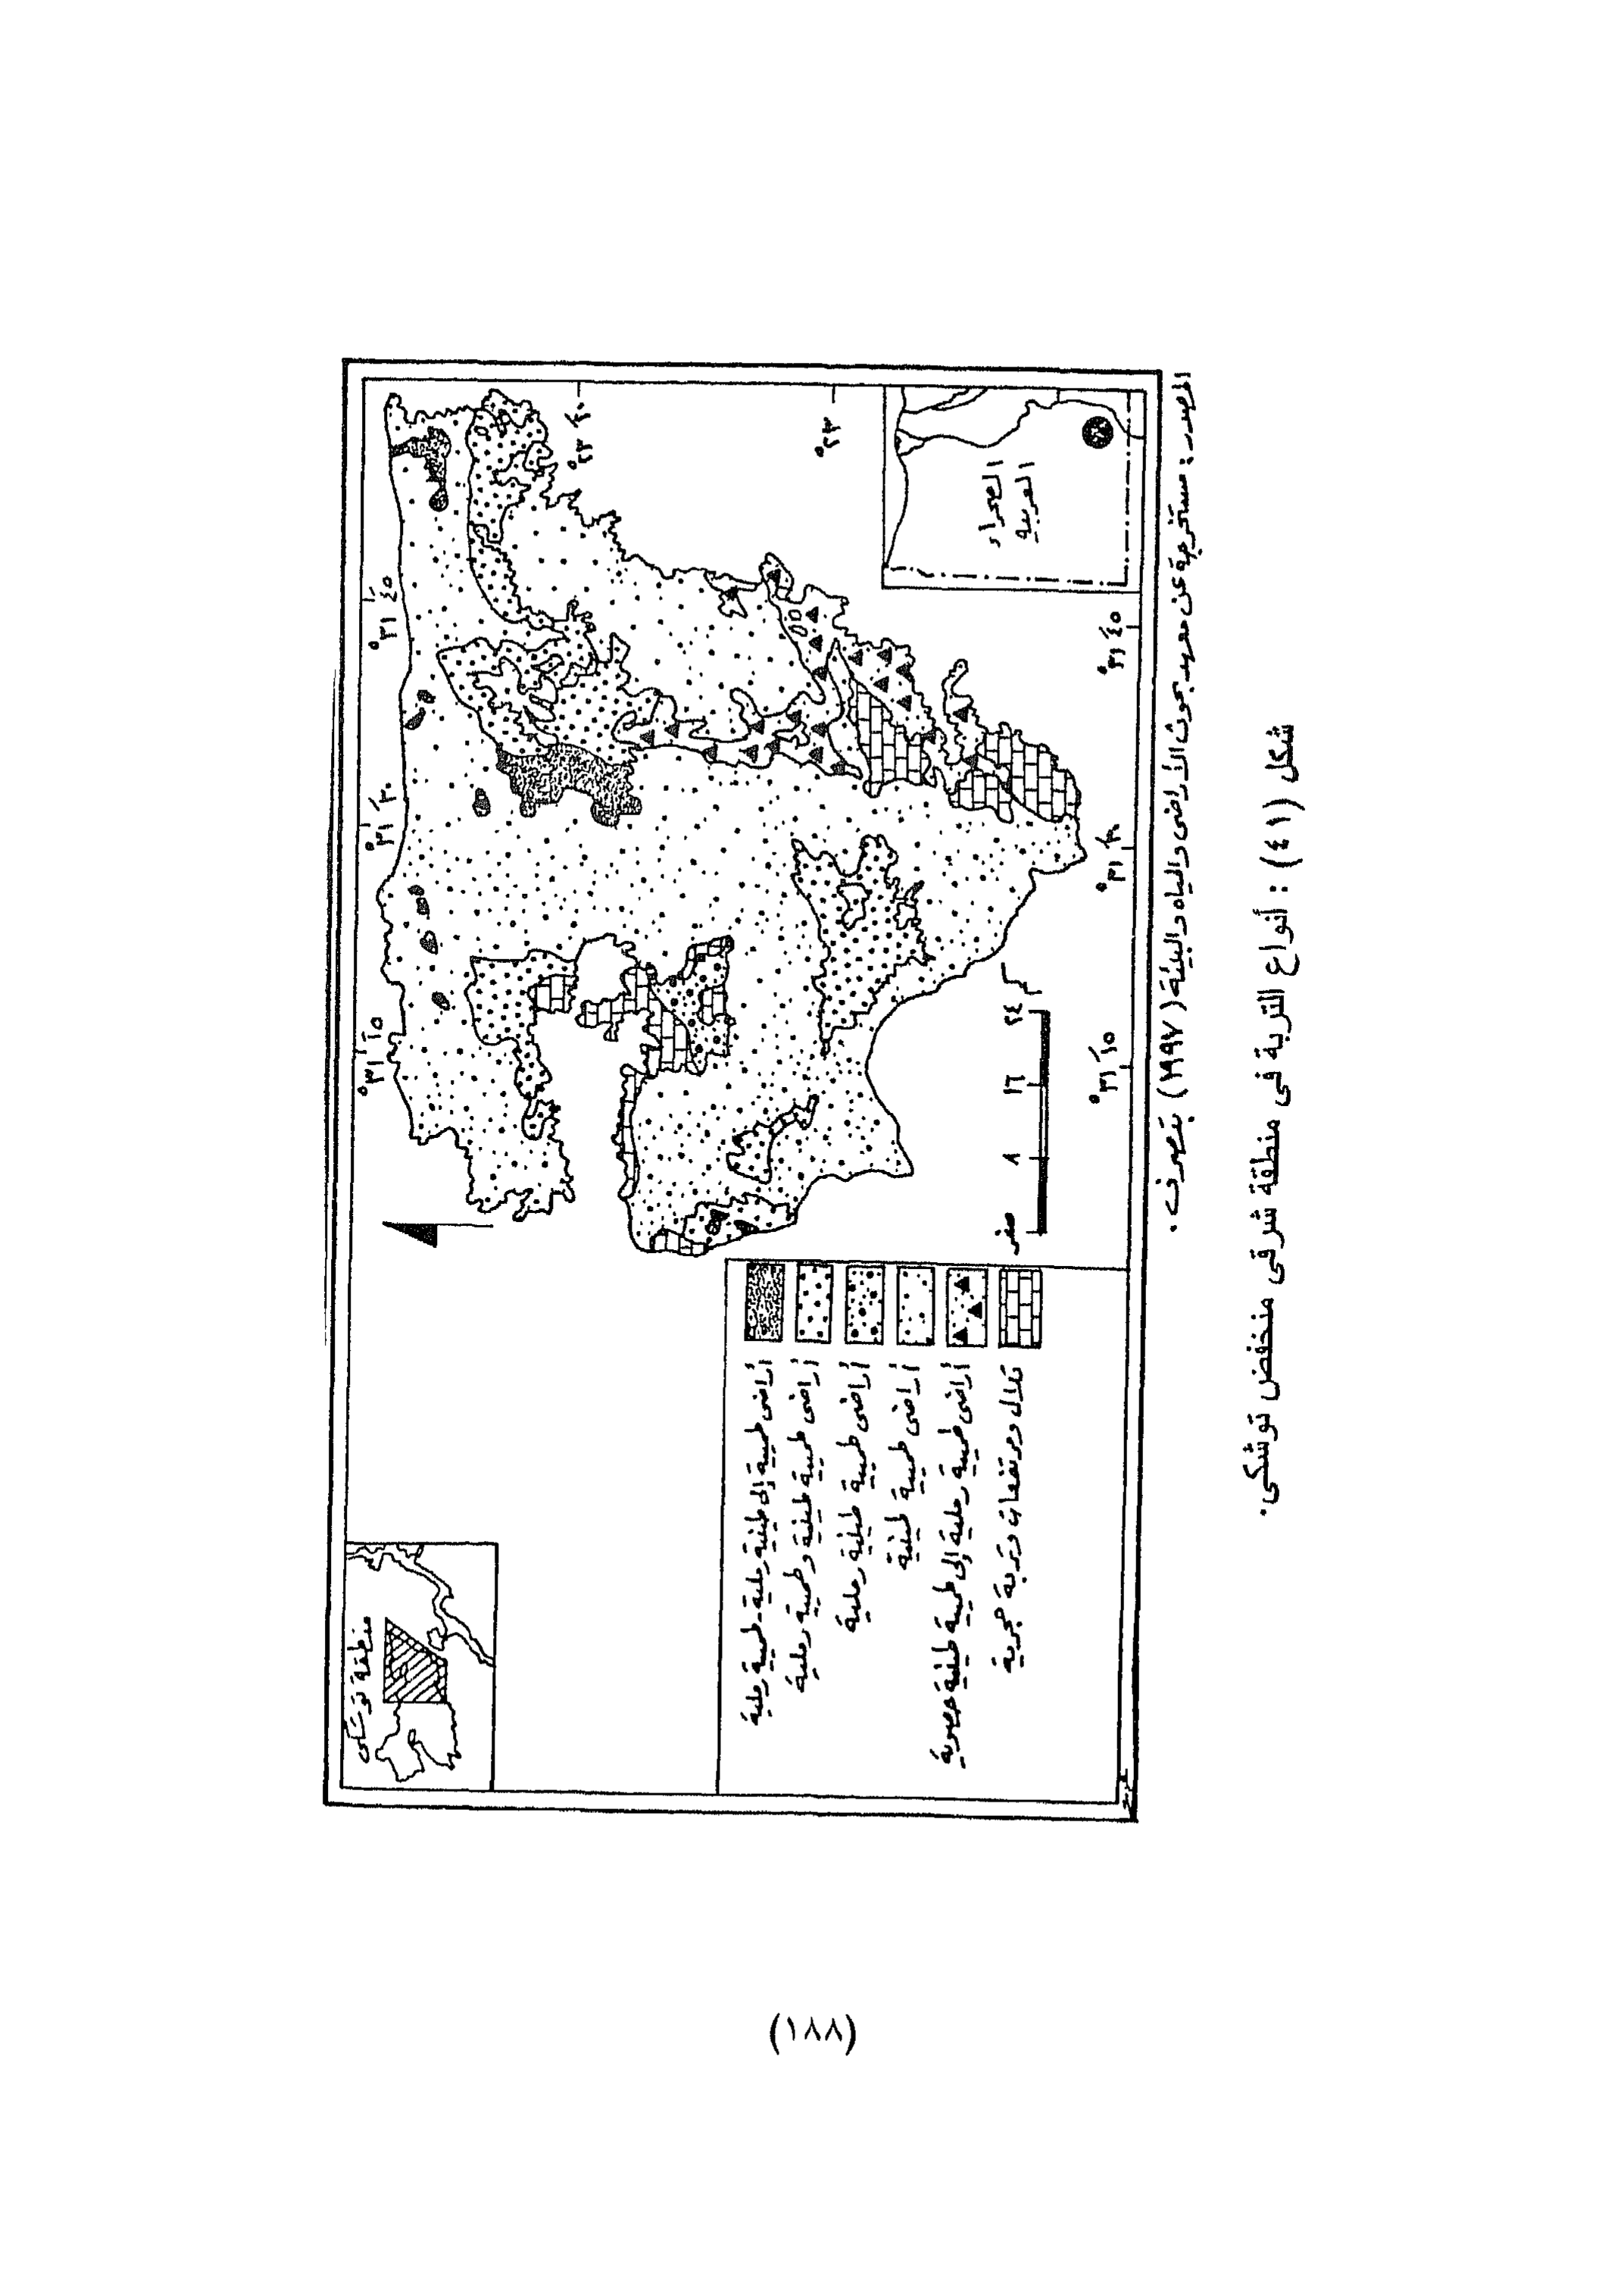 منطقة توشكى
°٣١ ١٥
°٣١ ٣٠
°٣١ ٤٥
°٢٣ ٢٠
°٢٣
الصحراء
الغربية
أراضى طميية إلى طينية رملية - طميية رملية
أراضى طميية طينية وطميية رملية
أراضى طميية طينية رملية
أراضى طميية طينية
أراضى طميية رملية إلى طميية طينية حصوية
تلال ومرتفعات وتربة حجرية
صفر ٨ ١٦ ٢٤ كم
°٣١ ١٥
°٣١ ٣٠
°٣١ ٤٥
المصدر : مستخرجة عن معهد بحوث الأراضى والمياه والبيئة (١٩٩٧) بتصرف .
شكل (٤١) : أنواع التربة فى منطقة شرقى منخفض توشكى.
(١٨٨)